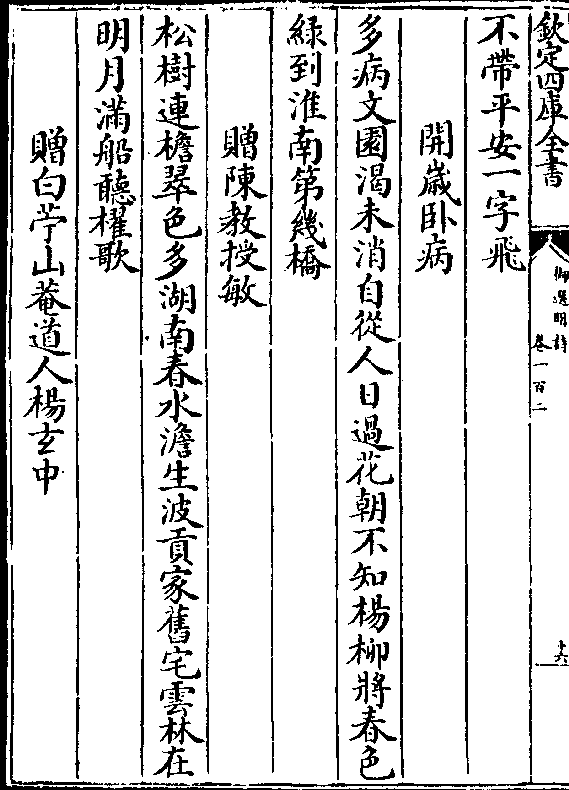 欽定四庫全書
御選明詩
卷一百二
十六
不帶平安一字飛
開歲卧病
多病文園渴未消自從人日過花朝不知楊柳將春色
綠到淮南第幾橋
贈陳教授敏
松樹連檐翠色多湖南春水澹生波貢家舊宅雲林在
明月滿船聽櫂歌
贈白苧山菴道人楊玄中